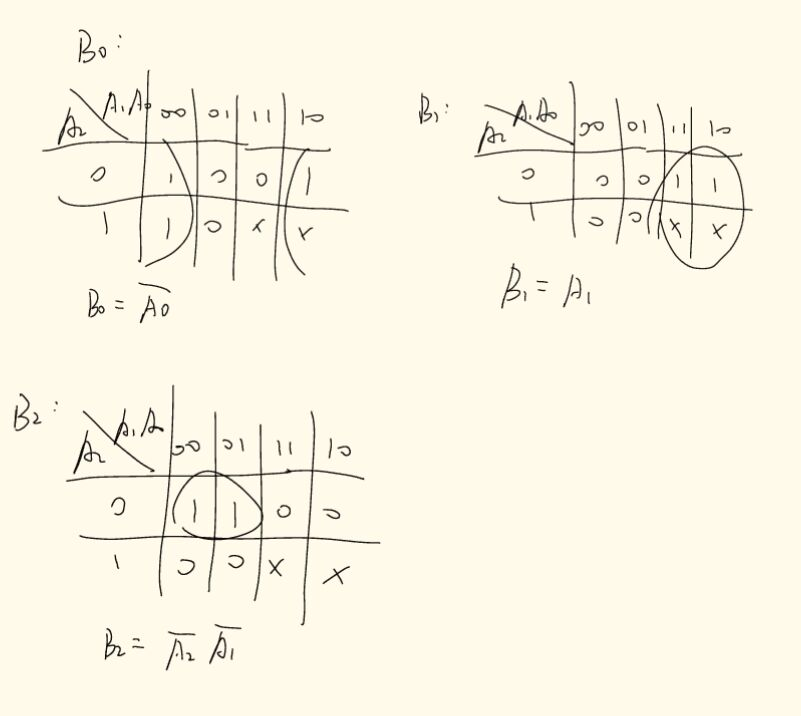 B₀:
A₂ \ A₁A₀ | 00 | 01 | 11 | 10
0 | 1 | 0 | 0 | 1
1 | 1 | 0 | x | x
B₀ = A̅₀
B₁:
A₂ \ A₁A₀ | 00 | 01 | 11 | 10
0 | 0 | 0 | 1 | 1
1 | 0 | 0 | x | x
B₁ = A₁
B₂:
A₂ \ A₁A | 00 | 01 | 11 | 10
0 | 1 | 1 | 0 | 0
1 | 0 | 0 | x | x
B₂ = A̅₂ A̅₁